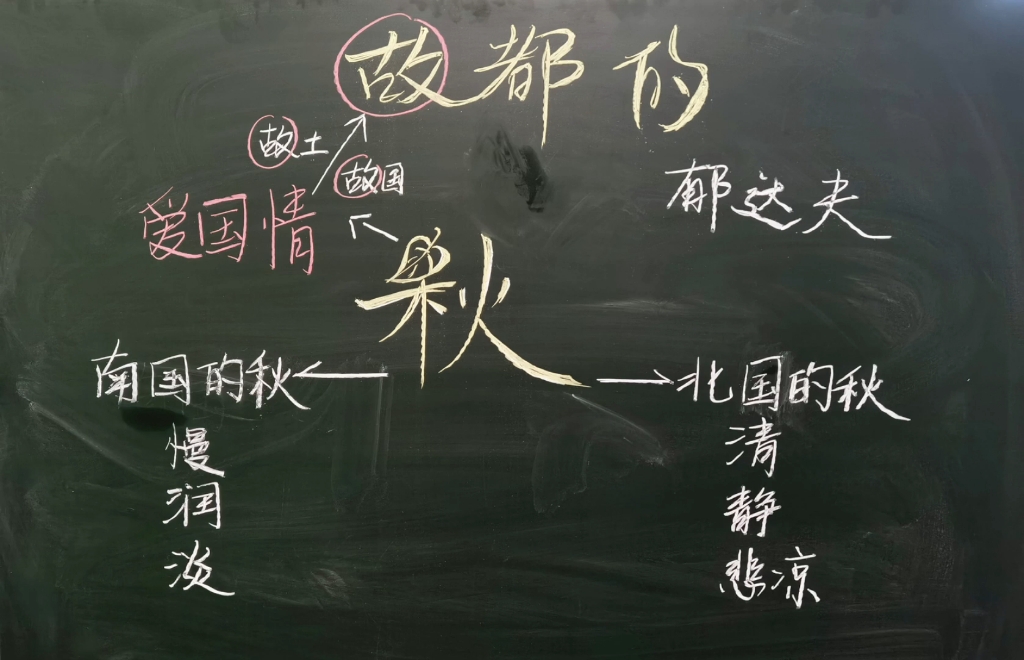 故都的
故土
故国
郁达夫
爱国情
秋
南国的秋
慢
润
淡
北国的秋
清
静
悲凉